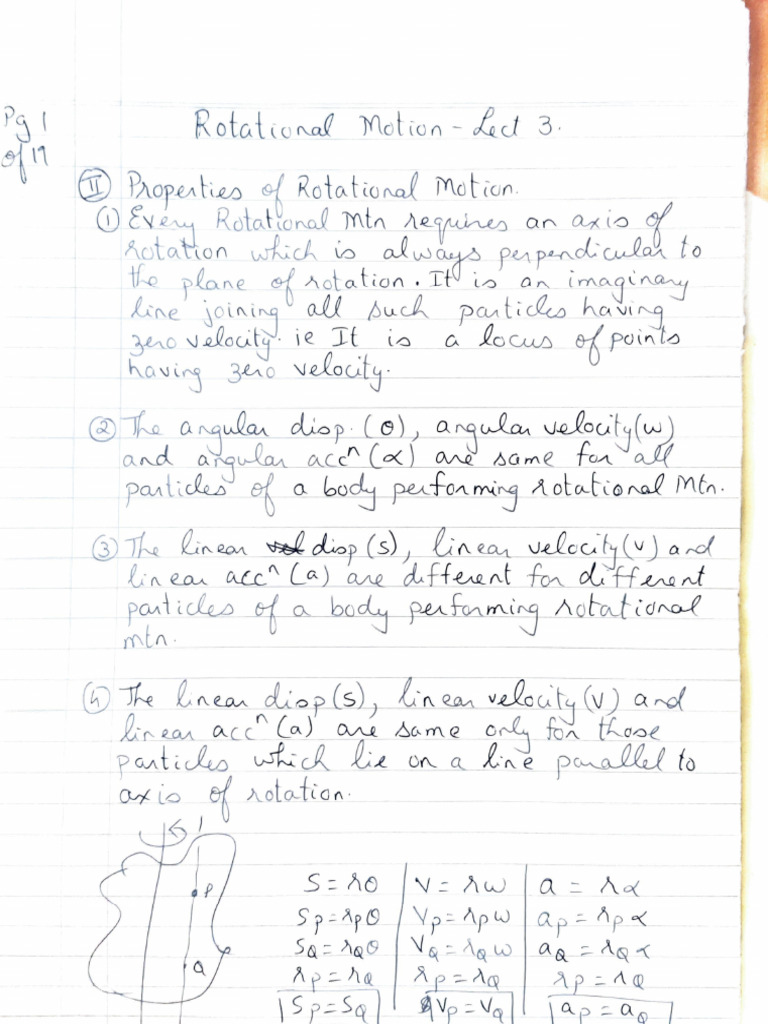 Pg 1
of 19
Rotational Motion - Lect 3.
II Properties of Rotational Motion.
1 Every Rotational Mtn requires an axis of
rotation which is always perpendicular to
the plane of rotation. It is an imaginary
line joining all such particles having
zero velocity. ie It is a locus of points
having zero velocity.
2 The angular disp. (θ), angular velocity(w)
and angular accⁿ (α) are same for all
particles of a body performing rotational Mtn.
3 The linear disp (s), linear velocity (v) and
linear accⁿ (a) are different for different
particles of a body performing rotational
mtn.
4 The linear disp (s), linear velocity (v) and
linear accⁿ (a) are same only for those
particles which lie on a line parallel to
axis of rotation.
P
Q
S = rθ
S_P = r_Pθ
S_Q = r_Qθ
r_P = r_Q
S_P = S_Q
V = rw
V_P = r_P w
V_Q = r_Q w
r_P = r_Q
V_P = V_Q
a = rα
a_P = r_P α
a_Q = r_Q α
r_P = r_Q
a_P = a_Q